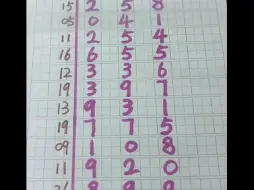 15 2 5 8
05 0 4 1
11 2 5 4
16 6 5 5
12 3 3 6
19 3 9 7
13 9 3 1
19 7 7 5
09 1 0 8
11 9 2 0